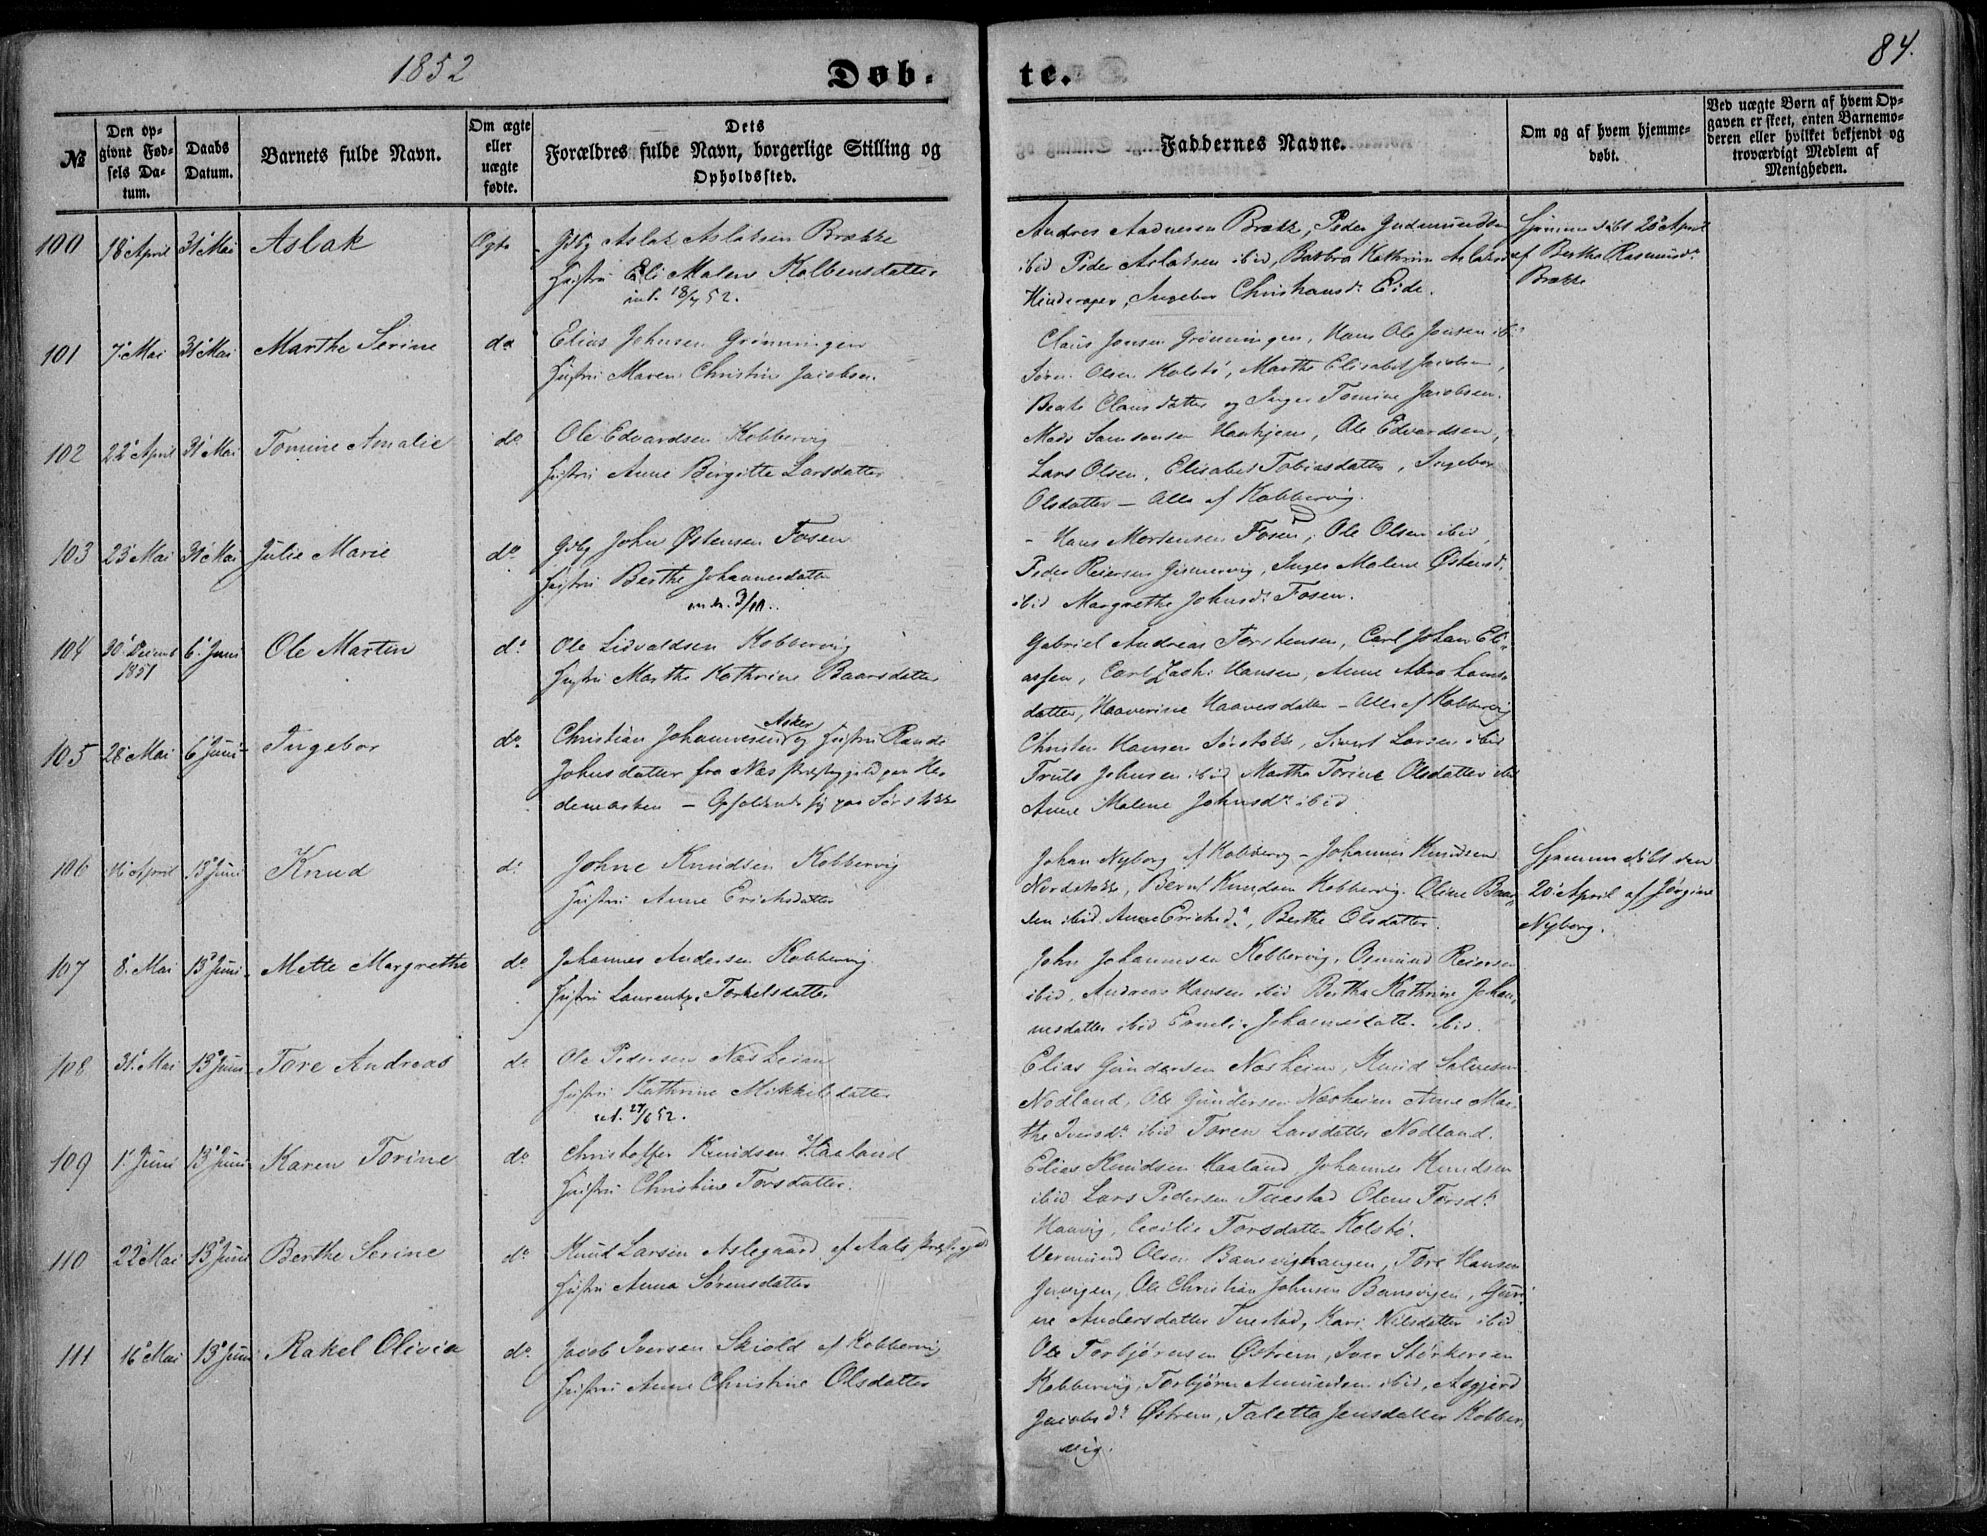 1852
Døb-
te.
84.
№
Den op-
givne Fød-
sels Da-
tum.
Daabs
Datum.
Barnets fulde Navn.
Om ægte
eller
uægte
fødte.
Dets
Forældres fulde Navn, borgerlige Stilling og
Opholdssted.
Faddernes Navne.
Om og af hvem hjemme-
døbt.
Ved uægte Børn af hvem Op-
gaven er skeet, enten Barnemo-
deren eller hvilket bekjendt og
troværdigt Medlem af
Menigheden.
100
18 April
31 Mai
Aslak
Ægte
Aslak Aslaksen Brække
Hustru Eli Malene Kolbensdatter
18/4 52.
Andres Aadnesen Brække, Peder Gudmundsen
ibid Peder Aslaksen ibid, Barbra Kathrine
Hinderager, Ingebor Christiansd. Eide.
Hjemmedøbt 20 April
af Berthe Rasmusd.
Brække
101
7 Mai
31 Mai
Marthe Serine
do
Elias Johnsen Grønningen
Hustru Maren Christine Jacobsen.
Claus Jonsen Grønningen, Hans Ole Jensen ibid
Olsen Kolstø, Marthe Elisabet Jacobsen,
Beate Clausdatter og Inger Tomine Jacobsen.
102
22 April
31 Mai
Tomine Amalie
do
Ole Edvardsen Kobbervig
Hustru Anne Birgitte Larsdatter
Mads Samsonsen, Ole Edvardsen,
Lars Olsen, Elisabet Tobiasdatter, Ingebor
Olsdatter — Alle af Kobbervig.
103
23 Mai
31 Mai
Julie Marie
do
John Østensen Fosen
Hustru Berthe Johannesdatter
— Hans Mortensen Fosen, Ole Olsen ibid,
Peder Reiersen, Inger Malene Østensd.
ibid Margrethe Johnsd. Fosen.
104
30 Decemb
1851
6 Juni
Ole Martin
do
Ole Sidvaldsen Kobbervig
Hustru Marthe Kathrine Baarsdatter
Gabriel Andreas Torstensen, Carl Johan Eli-
assen, Carl Zach. Hansen, Anne Abrahams-
datter, Haaverine Haaversdatter — Alle af Kobbervig
105
28 Mai
6 Juni
Ingebor
do
Asker
Christian Johannesen og Hustru Rande
Johnsdatter fra Næs Præstegjeld paa He-
demarken — Opholdende sig paa Sørstokke
Christen Hansen Sørstokke, Sivert Larsen ibid
Truls Johnsen ibid Marthe Torine Olsdatter ibid
Anne Malene Johnsd. ibid
106
16 April
13 Juni
Knud
do
Johne Knudsen Kobbervig
Hustru Anne Erichsdatter
Johan Nyborg af Kobbervig — Johannes Knudsen
Nordstokke, Bernt Knudsen Kobbervig. Oline
ibid. Anne Erichsd., Berthe Olsdatter.
Hjemmedøbt den
20 April af Jørgine
Nyborg.
107
8 Mai
13 Juni
Mette Margrethe
do
Johannes Andersen Kobbervig
Hustru Laurentze Torkelsdatter
John Johannesen Kobbervig, Osmund Reiersen
ibid, Andreas Hansen ibid Bertha Kathrine Johan-
nesdatter ibid Emeli Johannesdatter ibid.
108
31 Mai
13 Juni
Tore Andreas
do
Ole Pedersen Næsheim
Hustru Kathrine Mikkelsdatter
Elias Gundersen Næsheim, Knud Salvesen
Nodland, Ole Gundersen Næsheim Anne Mar-
the Iversd. ibid Toren Larsdatter Nodland.
109
1 Juni
13 Juni
Karen Torine
do
Christoffer Knudsen Haaland
Hustru Christine Torsdatter.
Elias Knudsen Haaland, Johannes Knudsen
ibid Lars Pedersen Tuestad Olene Torsd.
Haavig, Cecilie Torsdatter Kolstø.
110
22 Mai
13 Juni
Berthe Serine
do
Knud Larsen Aslegaard af Aals Præstegjeld
Hustru Anna Sørensdatter
Vermund Olsen Bansvighaugen, Tore Hansen
Ole Christian Johnsen Bansvigen,
Andersdatter Tuestad, Kari Nilsdatter ibid
111
16 Mai
13 Juni
Rakel Olivia
do
Jacob Iversen Skiold af Kobbervig
Hustru Anne Christine Olsdatter
Ole Torbjørnsen Østrem, Iver Størkersen
Kobbervig, Torbjørn Amundsen ibid, Asgjerd
Jacobsd. Østrem, Taletta Jensdatter Kobber-
vig.